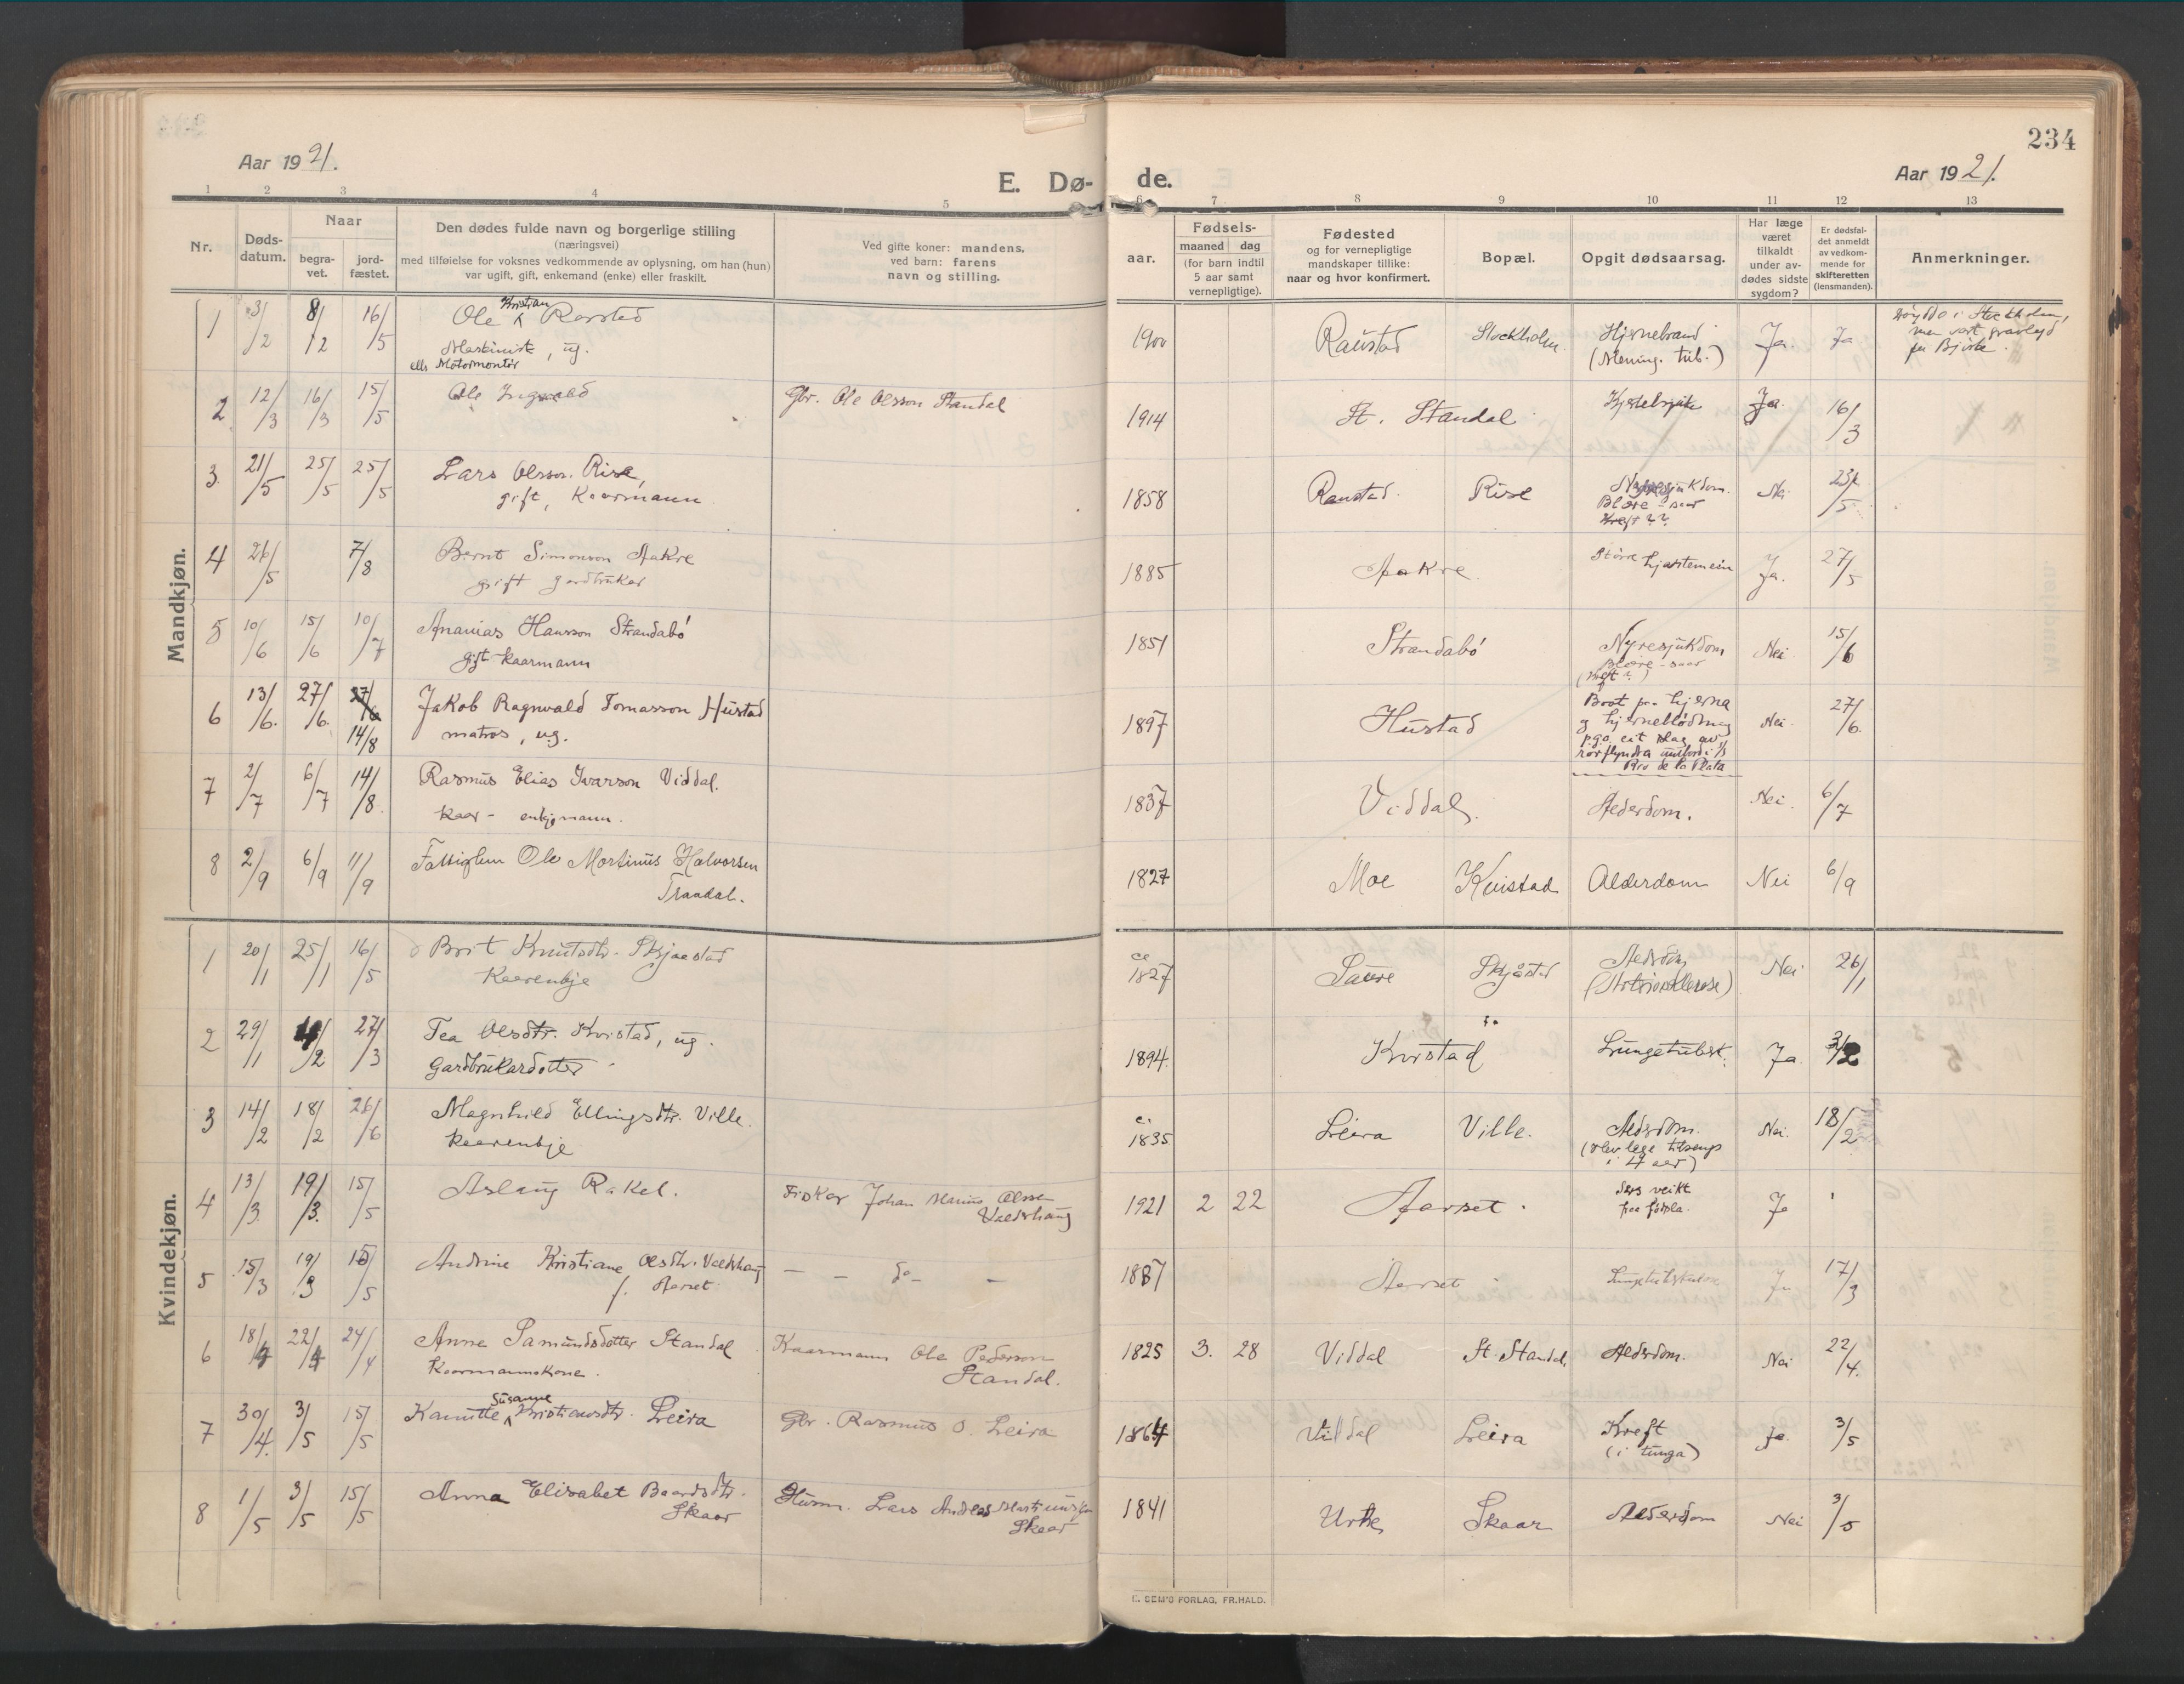 234
Aar 1921.
E. Dø-
de.
Aar 1921.
1 2 3 4 5 6 7 8 9 10 11 12 13
Nr.
Døds-
datum.
Naar
begra-
vet.
jord-
fæstet.
Den dødes fulde navn og borgerlige stilling
(næringsvei)
med tilføielse for voksnes vedkommende av oplysning, om han (hun)
var ugift, gift, enkemand (enke) eller fraskilt.
Ved gifte koner: mandens,
ved barn: farens
navn og stilling.
Fødsels-
aar.
maaned dag
(for barn indtil
5 aar samt
vernepligtige).
Fødested
og for vernepligtige
mandskaper tillike:
naar og hvor konfirmert.
Bopæl.
Opgit dødsaarsag.
Har læge
været
tilkaldt
under av-
dødes sidste
sygdom?
Er dødsfal-
det anmeldt
av vedkom-
mende for
skifteretten
(lensmanden).
Anmerkninger.
Mandkjøn.
1 3/2 8/12 16/5 Ole Kristian Ravstad 1900 Raustad Stockholm Hjernebrand Ja. Ja döydde i Stockholm,
Maskinist, ug. (Mening. tub.) men vart gravlagd
ell. Motormontör paa Bjørke.
2 12/3 16/3 15/5 Ole Ingvald Gbr. Ole Olsson Standal 1914 St. Standal Ja. 16/3
3 21/5 25/5 25/5 Lars Olsson Rise, 1858 Raustad Rise Nyresjukdom. Nei 23/5
gift, Kaarmann Blære-saar
Kreft??
4 26/5 7/8 Bernt Simonson Aakre 1885 Aakre Større hjartemein Ja. 27/5
gift gardbrukar
5 10/6 15/6 10/7 Ananias Hansson Strandabö 1851 Strandabö Nyresjukdom Nei 15/6
gift kaarmann Blære-saar
(Kreft?)
6 13/6. 27/6. 27/6 14/8 Jakob Ragnvald Tomasson Hustad 1897 Hustad Brot paa hjerna Nei. 27/6.
matros, ug. og hjernebløding
p.g.a. eit slag av
rorflyndra ombord i
Rio de la Plata
7 2/7 6/7 14/8 Rasmus Elias Ivarson Viddal. 1837 Viddal. Alderdom. Nei. 6/7
kaar- enkjemann.
8 2/9 6/9 11/9 Fattiglem Ole Martinus Halvorsen 1827 Moe Kvistad Alderdom Nei 6/9
Trandal.
Kvindekjøn.
1 20/1 25/1 16/5 Brit Knutsdtr. Skjaastad ca 1827 Saure Skjåstad Alderdom Nei 26/1
Kaarenkje (Arteriosklerose)
2 29/1 /2 27/3 Tea Olsdtr. Kvistad, ug. 1894. Kvistad Lungetuberk. Ja. 3/2
Gardbrukardotter
3 14/2 18/2 26/6 Magnhild Ellingsdtr. Ville. ca. 1835 Leira Ville. Aldsdom. Nei. 18/2
kaarenkje i 4 aar)
4 13/3 19/3. 15/5 Aslaug Rakel. Fiskar Johan Marius Olsson 1921 2 22 Aarset. Ja
Valderhaug
veikt
fraa födsla.
5 15/3 19/3 15/5 Andrine Kristiane Olsdtr. Valdrhaug — — do — — 1887 Aarset Lungetuberkulose Ja 17/3
f. Aarset
6 18/4 22/4 24/4 Anne Samundsdotter Standal Kaarmann Ole Pederson 1825 3. 28 Viddal St. Standal Aldsdom. Nei 22/4.
Kaarmannskone. Standal.
7 30/4. 3/5 15/5 Kanutte Susanne Kristiansdtr. Leira Gbr. Rasmus O. Leira 1864 Viddal Leira Kreft Ja. 3/5
(i tunga)
8 1/5 3/5 15/5 Anna Elisabet Baardsdtr. Husm. Lars Andreas Martinusson 1841 Urke Skaar Alderdom Nei 3/5
Skaar Skaar
E. SEM'S FORLAG, FR.HALD.